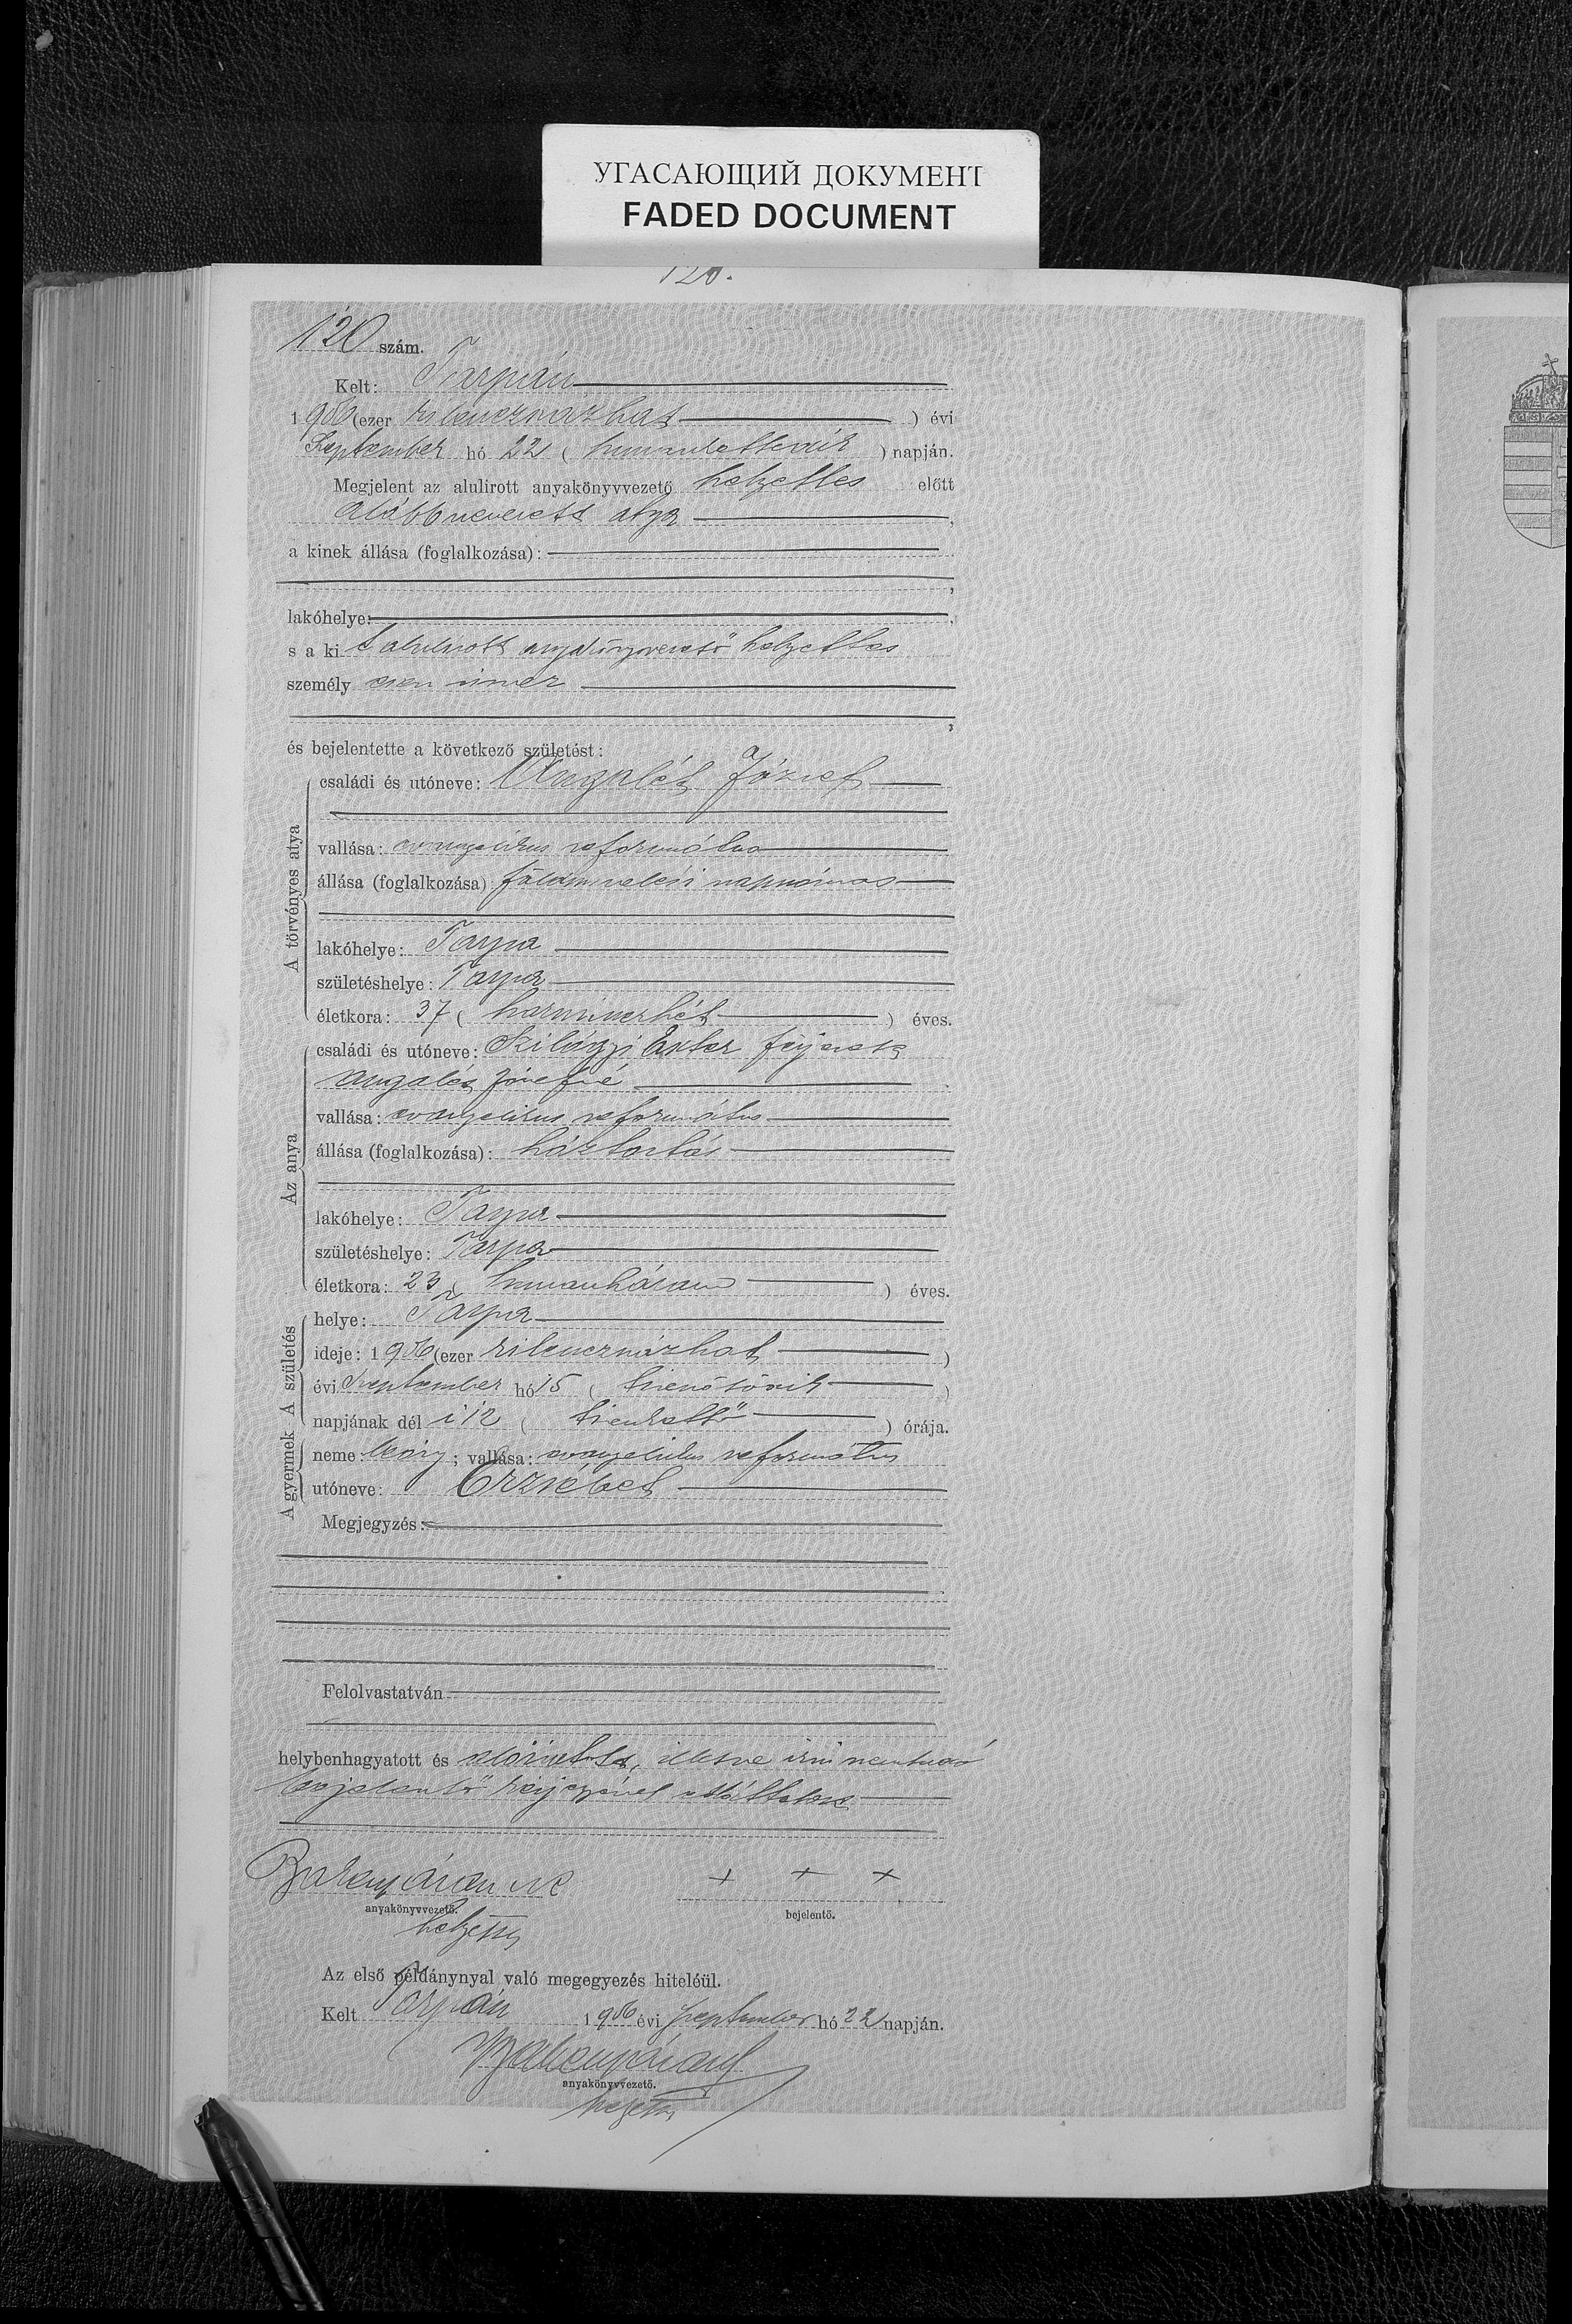 УГАСАЮЩИЙ ДОКУМЕНТ
FADED DOCUMENT
120.
120 szám.
Kelt: Tarpán
1906 (ezer kilenczszázhat ) évi
Szeptember hó 22 ( huszonkettedik ) napján.
Megjelent az alulirott anyakönyvvezető helyettes előtt
alább nevezett atya ,
a kinek állása (foglalkozása):
lakóhelye:
s a ki t alulirott anyakönyvvezető helyettes
személyesen ismer
és bejelentette a következő születést:
A törvényes atya
családi és utóneve: Angalét József
vallása: evangelikus református
állása (foglalkozása): földmivelési napszámos
lakóhelye: Tarpa
születéshelye: Tarpa
életkora: 37 ( harminczhét ) éves.
Az anya
családi és utóneve: Szilágyi Eszter férjezett
Angalét Józsefné
vallása: evangelikus református
állása (foglalkozása): háztartás
lakóhelye: Tarpa
születéshelye: Tarpa
életkora: 23 ( huszonhárom ) éves.
A születés
helye: Tarpa
ideje: 1906 (ezer kilenczszázhat )
évi Szeptember hó 15 ( tizenötödik )
napjának dél i 12 ( tizenkettő ) órája.
A gyermek
neme: leány; vallása: evangelikus református
utóneve: Erzsébet
Megjegyzés:
Felolvastatván
helybenhagyatott és aláiratott, illetve irni nem tudó
bejelentő kézjegyével elláttatott
+ + +
anyakönyvvezető. bejelentő.
helyettes
Az első példánynyal való megegyezés hiteléül.
Kelt Tarpán 1906 évi Szeptember hó 22 napján.
anyakönyvvezető.
helyettes